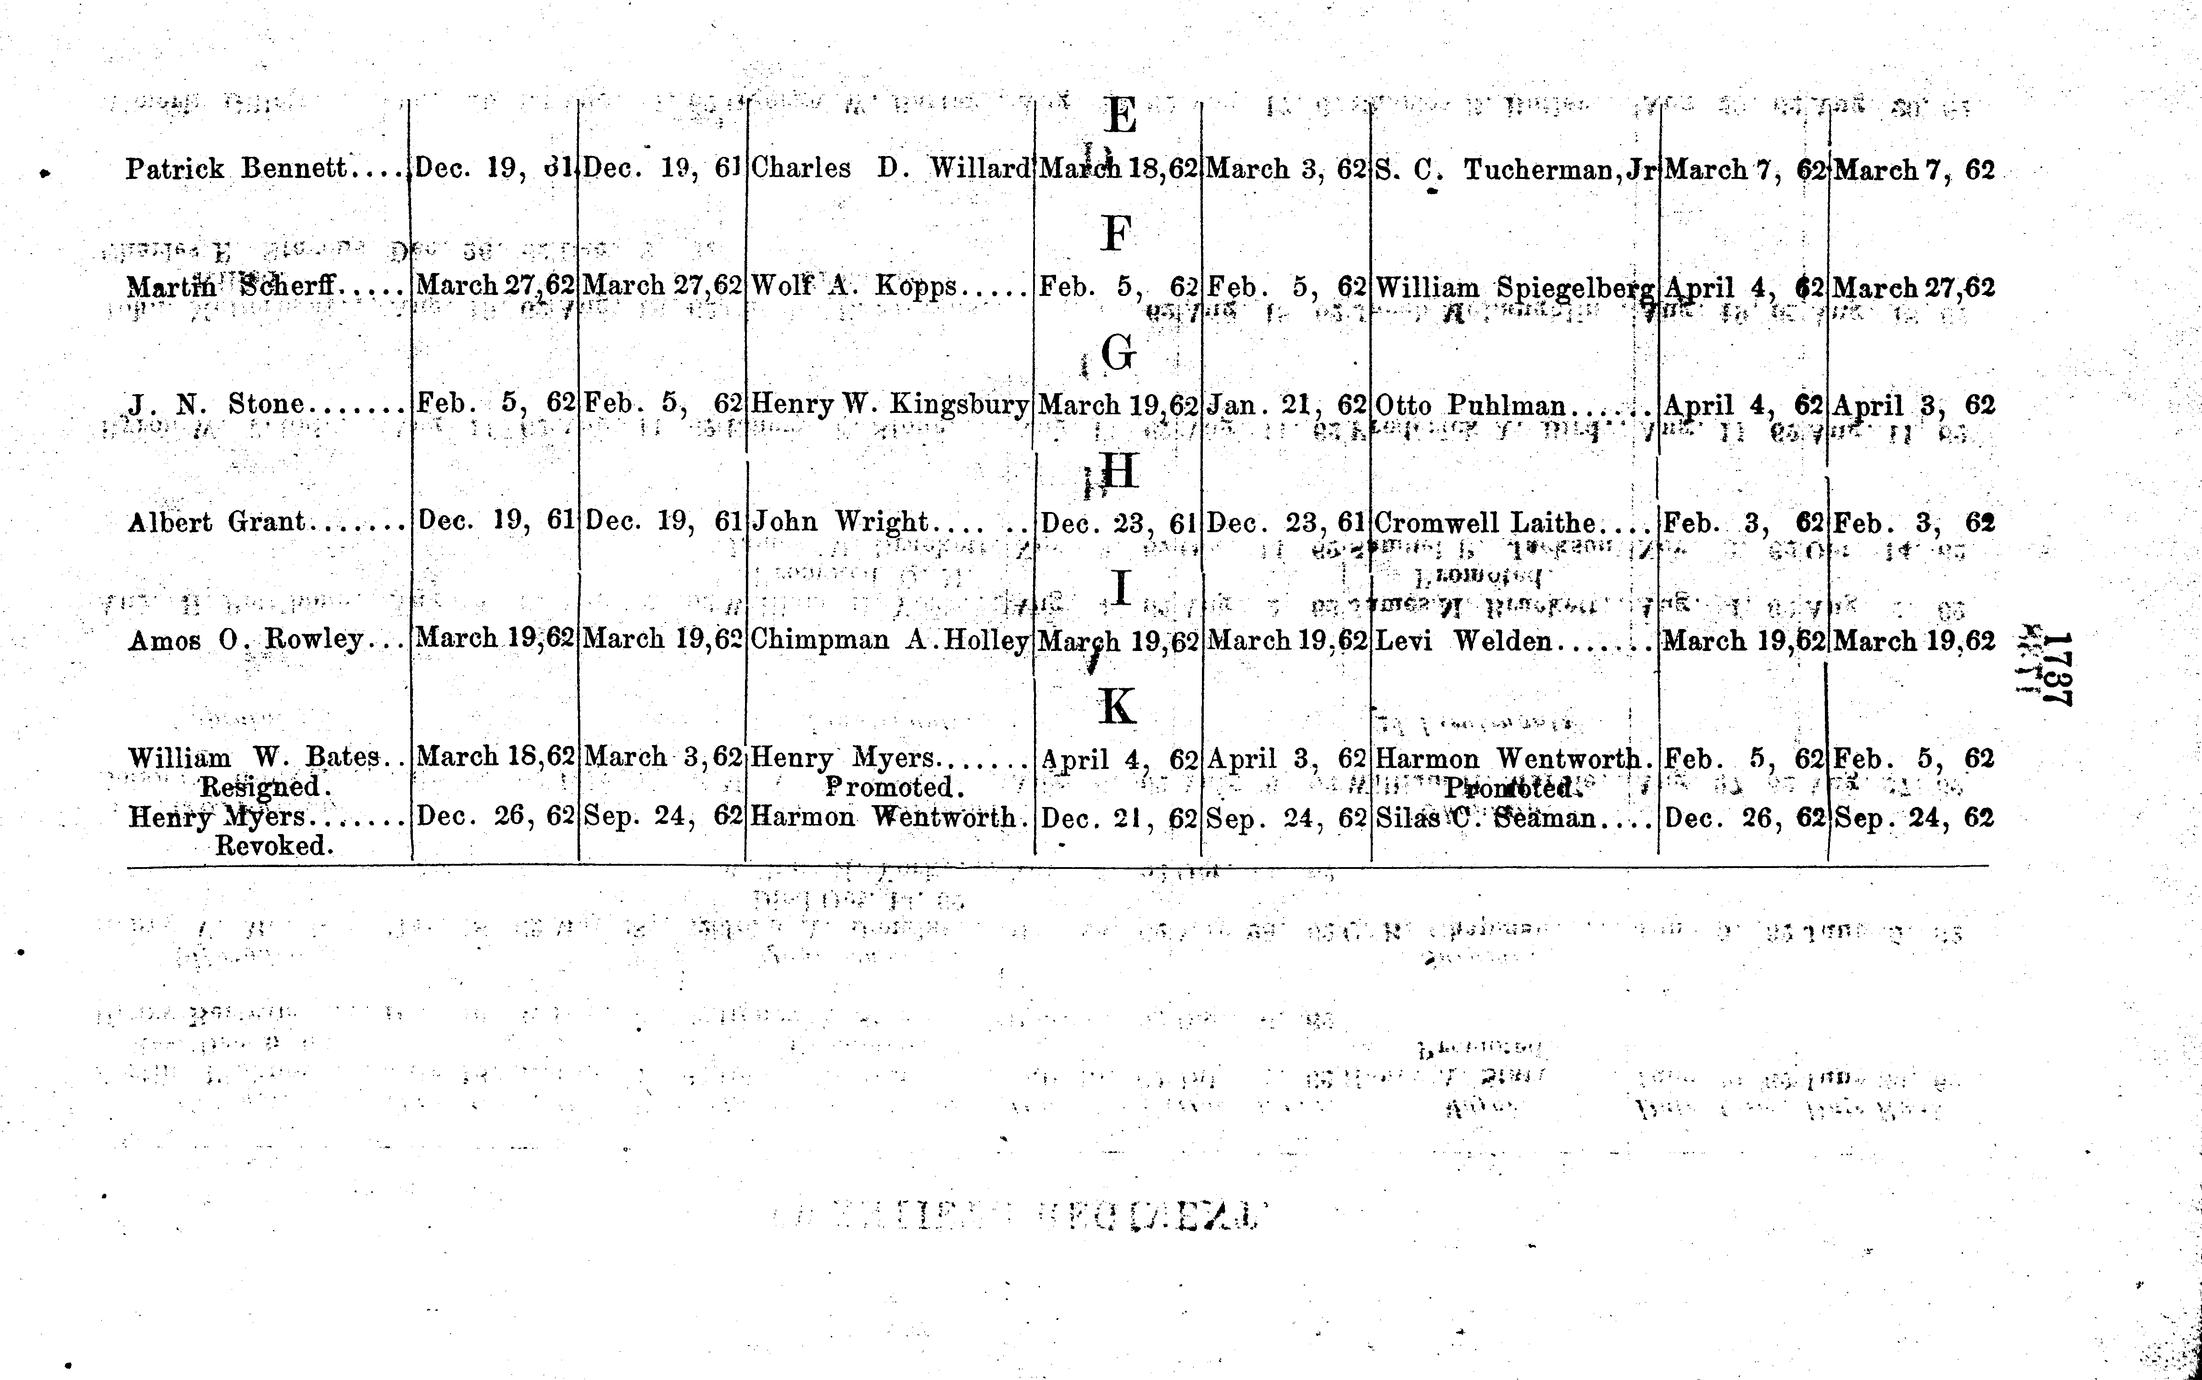 E
Patrick Bennett.... Dec. 19, 61 Dec. 19, 61 Charles D. Willard March 18,62 March 3, 62 S. C. Tucherman, Jr March 7, 62 March 7, 62
F
Martin Scherff..... March 27,62 March 27,62 Wolf A. Kopps..... Feb. 5, 62 Feb. 5, 62 William Spiegelberg April 4, 62 March 27,62
G
J. N. Stone....... Feb. 5, 62 Feb. 5, 62 Henry W. Kingsbury March 19,62 Jan. 21, 62 Otto Puhlman...... April 4, 62 April 3, 62
H
Albert Grant....... Dec. 19, 61 Dec. 19, 61 John Wright.... .. Dec. 23, 61 Dec. 23, 61 Cromwell Laithe.... Feb. 3, 62 Feb. 3, 62
I
Amos O. Rowley... March 19,62 March 19,62 Chimpman A. Holley March 19,62 March 19,62 Levi Welden....... March 19,62 March 19,62
K
William W. Bates.. March 18,62 March 3,62 Henry Myers....... April 4, 62 April 3, 62 Harmon Wentworth. Feb. 5, 62 Feb. 5, 62
Resigned. Promoted. Promoted.
Henry Myers....... Dec. 26, 62 Sep. 24, 62 Harmon Wentworth. Dec. 21, 62 Sep. 24, 62 Silas C. Seaman.... Dec. 26, 62 Sep. 24, 62
Revoked.
1737